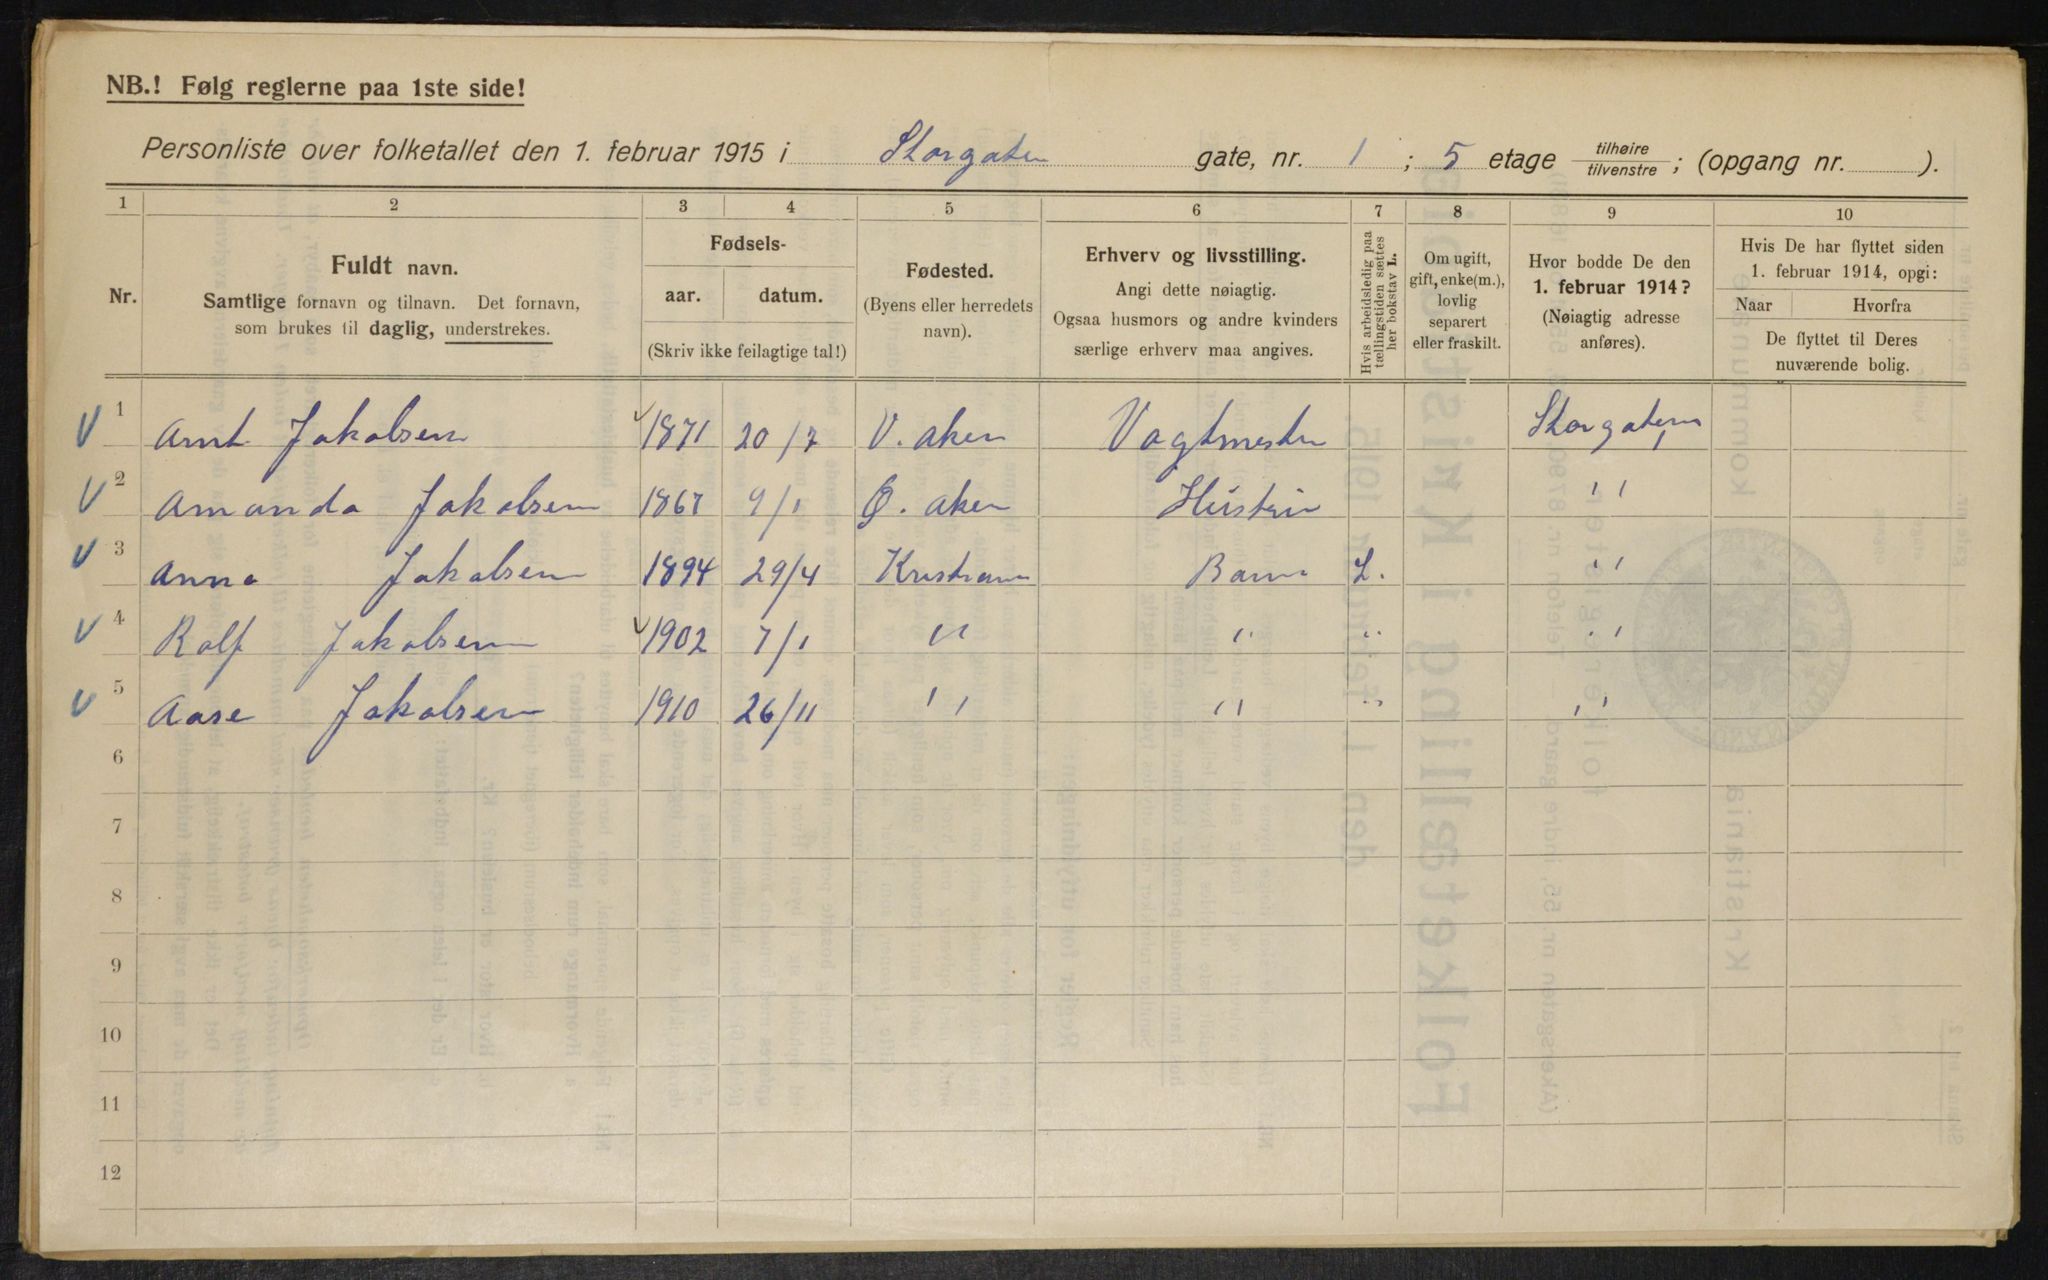 NB.! Følg reglerne paa 1ste side!
Personliste over folketallet den 1. februar 1915 i Storgaten gate, nr. 1; 5 etage tilhøire / tilvenstre; (opgang nr. ).
1 2 3 4 5 6 7 8 9 10
Nr.
Fuldt navn.
Samtlige fornavn og tilnavn. Det fornavn,
som brukes til daglig, understrekes.
Fødsels-
aar. datum.
(Skriv ikke feilagtige tal!)
Fødested.
(Byens eller herredets
navn).
Erhverv og livsstilling.
Angi dette nøiagtig.
Ogsaa husmors og andre kvinders
særlige erhverv maa angives.
Hvis arbeidsledig paa
tællingstiden sættes
her bokstav L.
Om ugift,
gift, enke(m.),
lovlig
separert
eller fraskilt.
Hvor bodde De den
1. februar 1914?
(Nøiagtig adresse
anføres).
Hvis De har flyttet siden
1. februar 1914, opgi:
Naar Hvorfra
De flyttet til Deres
nuværende bolig.
V 1 Arnt Jakobsen 1871 20/7 V. Aker Vagtmester Storgaten 1
V 2 Amanda Jakobsen 1867 9/1 Ø. Aker Hustru "
V 3 Anna Jakobsen 1894 29/4 Kristiania Barn L. "
V 4 Rolf Jakobsen 1902 7/1 " " " "
V 5 Aase Jakobsen 1910 26/11 " " " "
6
7
8
9
10
11
12